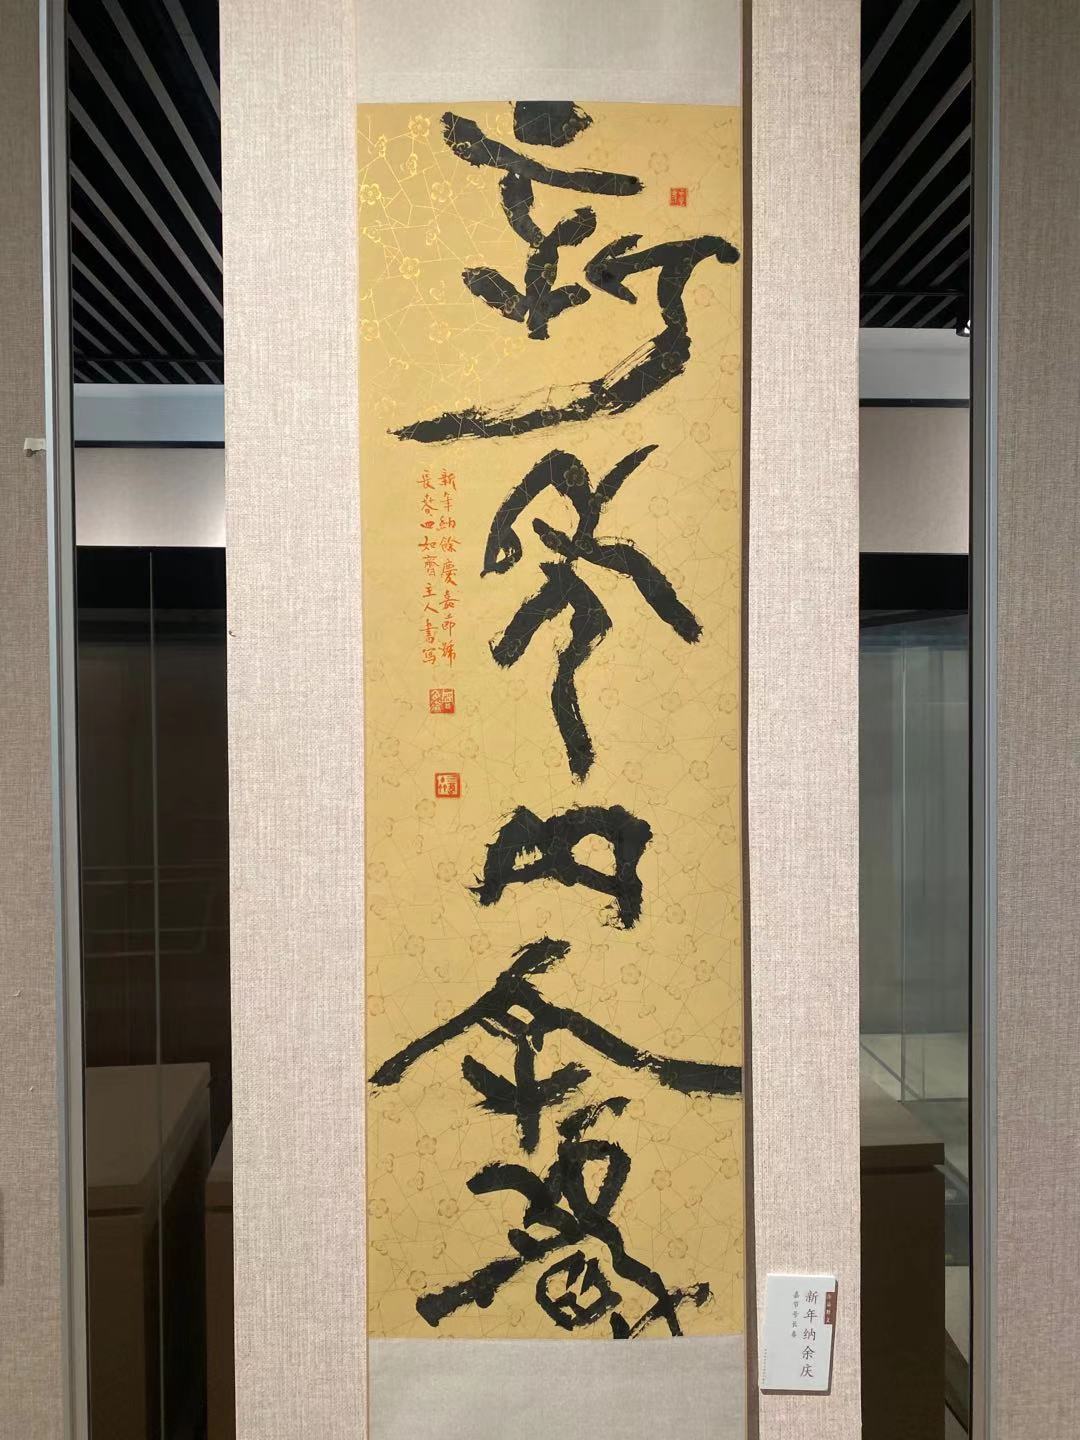 新年内余慶
新年納餘慶嘉節號
長春四如齋主人書寫
新年纳余庆
嘉节号长春